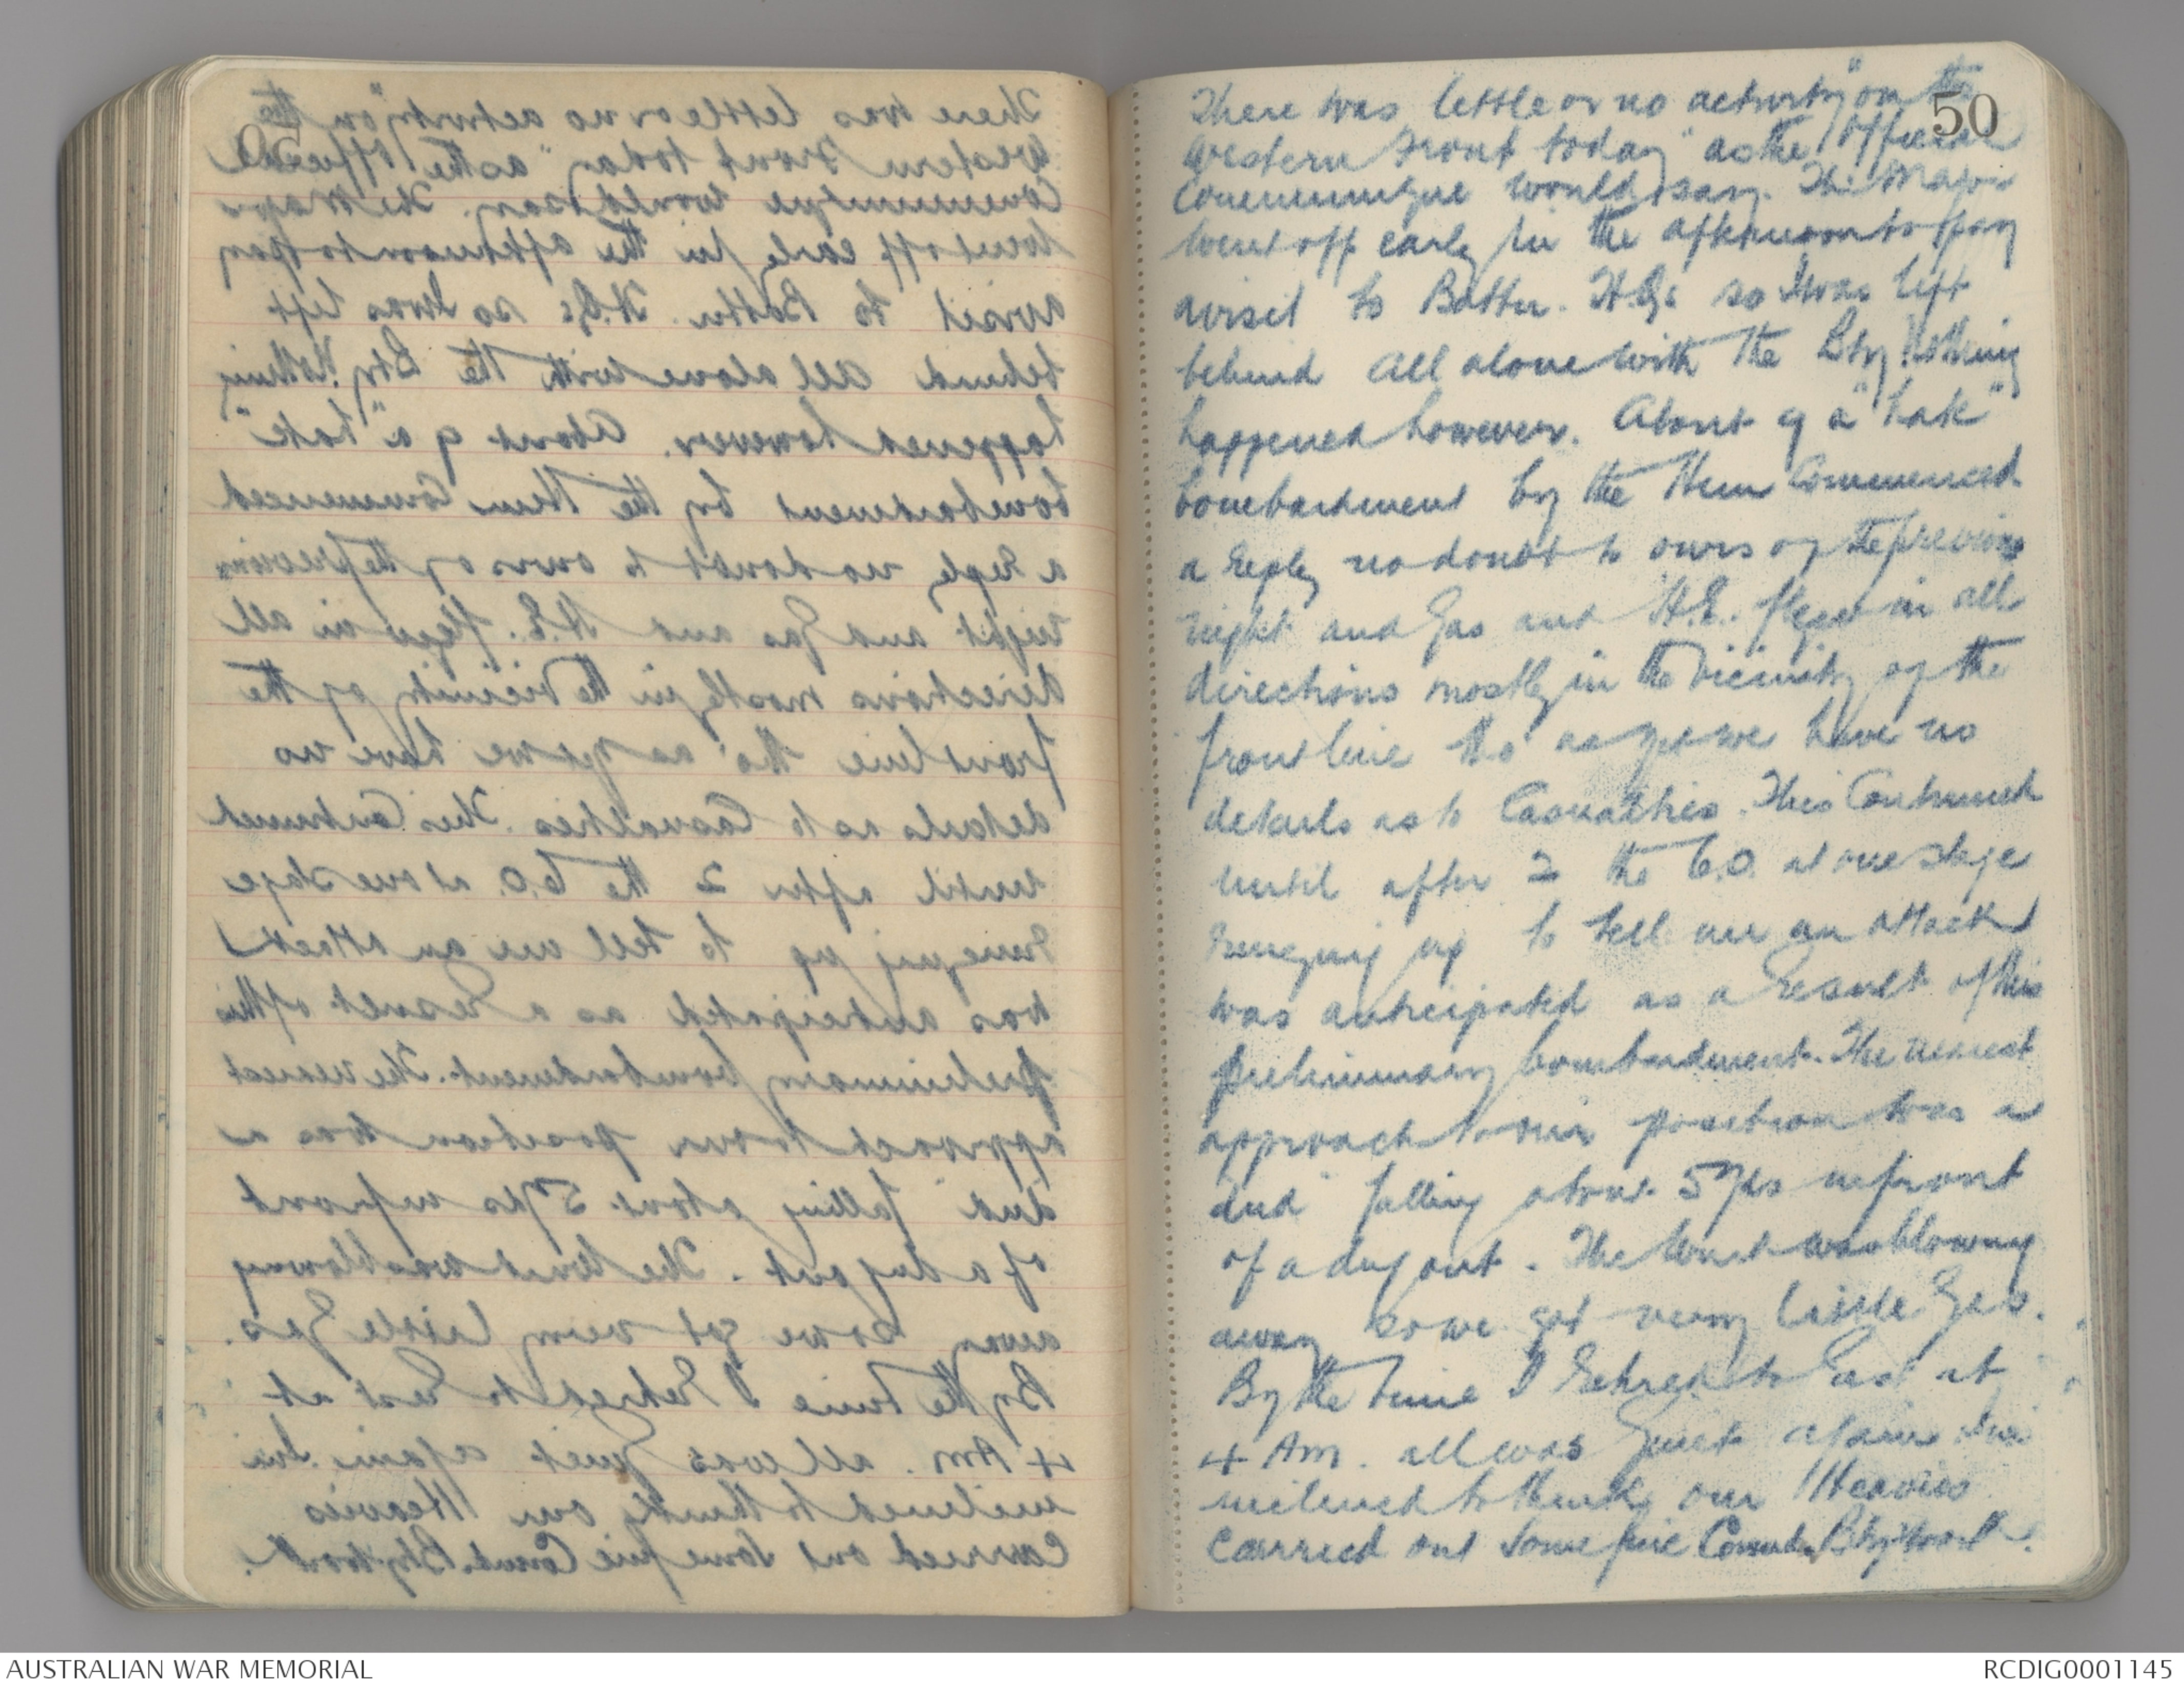 50
There was little or no activity "on the
Western Front today" as the official
Communique would say. The Major
went off early in the afternoon to pay
a visit to Battn. H.Qs so I was left
behind all alone with the Bty. Nothing
happened however. About 9 a "hate"
bombardment by the Hun commenced
a reply no doubt to ours of the previous
night and Gas and H.E. flew in all
directions mostly in the vicinity of the
front line tho' as yet we have no
details as to Casualties. This Continued
until after 2 the C.O. at one stage
ringing up to tell me an attack
was anticipated as a result of this
preliminary bombardment. The nearest
approach to our position was a
dud falling about 5 yds in front
of a dug out. The wind was blowing
away so we got very little Gas.
By the time I retired to rest at
4 Am. all was quiet again. I'm
inclined to think our Heavies
carried out some fine Bty work.
AUSTRALIAN WAR MEMORIAL
RCDIG0001145